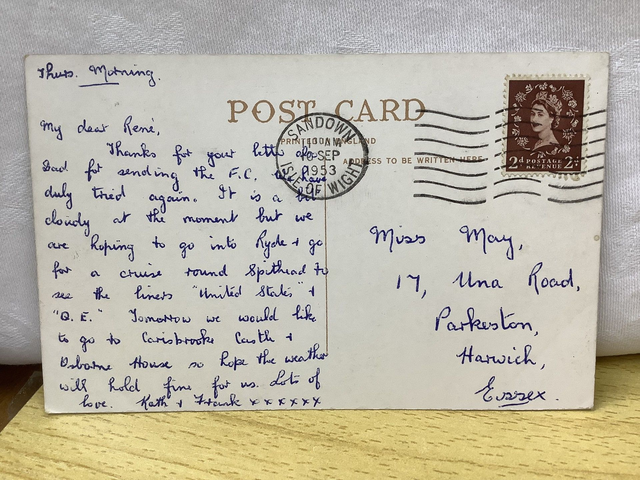 Thurs. Morning.
POST CARD
PRINTED IN ENGLAND
ADDRESS TO BE WRITTEN HERE
SANDOWN
SEP
1953
ISLE OF WIGHT
2d POSTAGE REVENUE 2d
My dear René,
Thanks for your letter &
Dad for sending the F.C. We have
duly tried again. It is a bit
cloudy at the moment but we
are hoping to go into Ryde & go
for a cruise round Spithead to
see the liners "United States" &
"Q.E." Tomorrow we would like
to go to Carisbrooke Castle &
Osborne House so hope the weather
will hold fine for us. Lots of
love. Kath & Frank x x x x x x
Miss May,
17, Una Road,
Parkeston,
Harwich,
Essex.